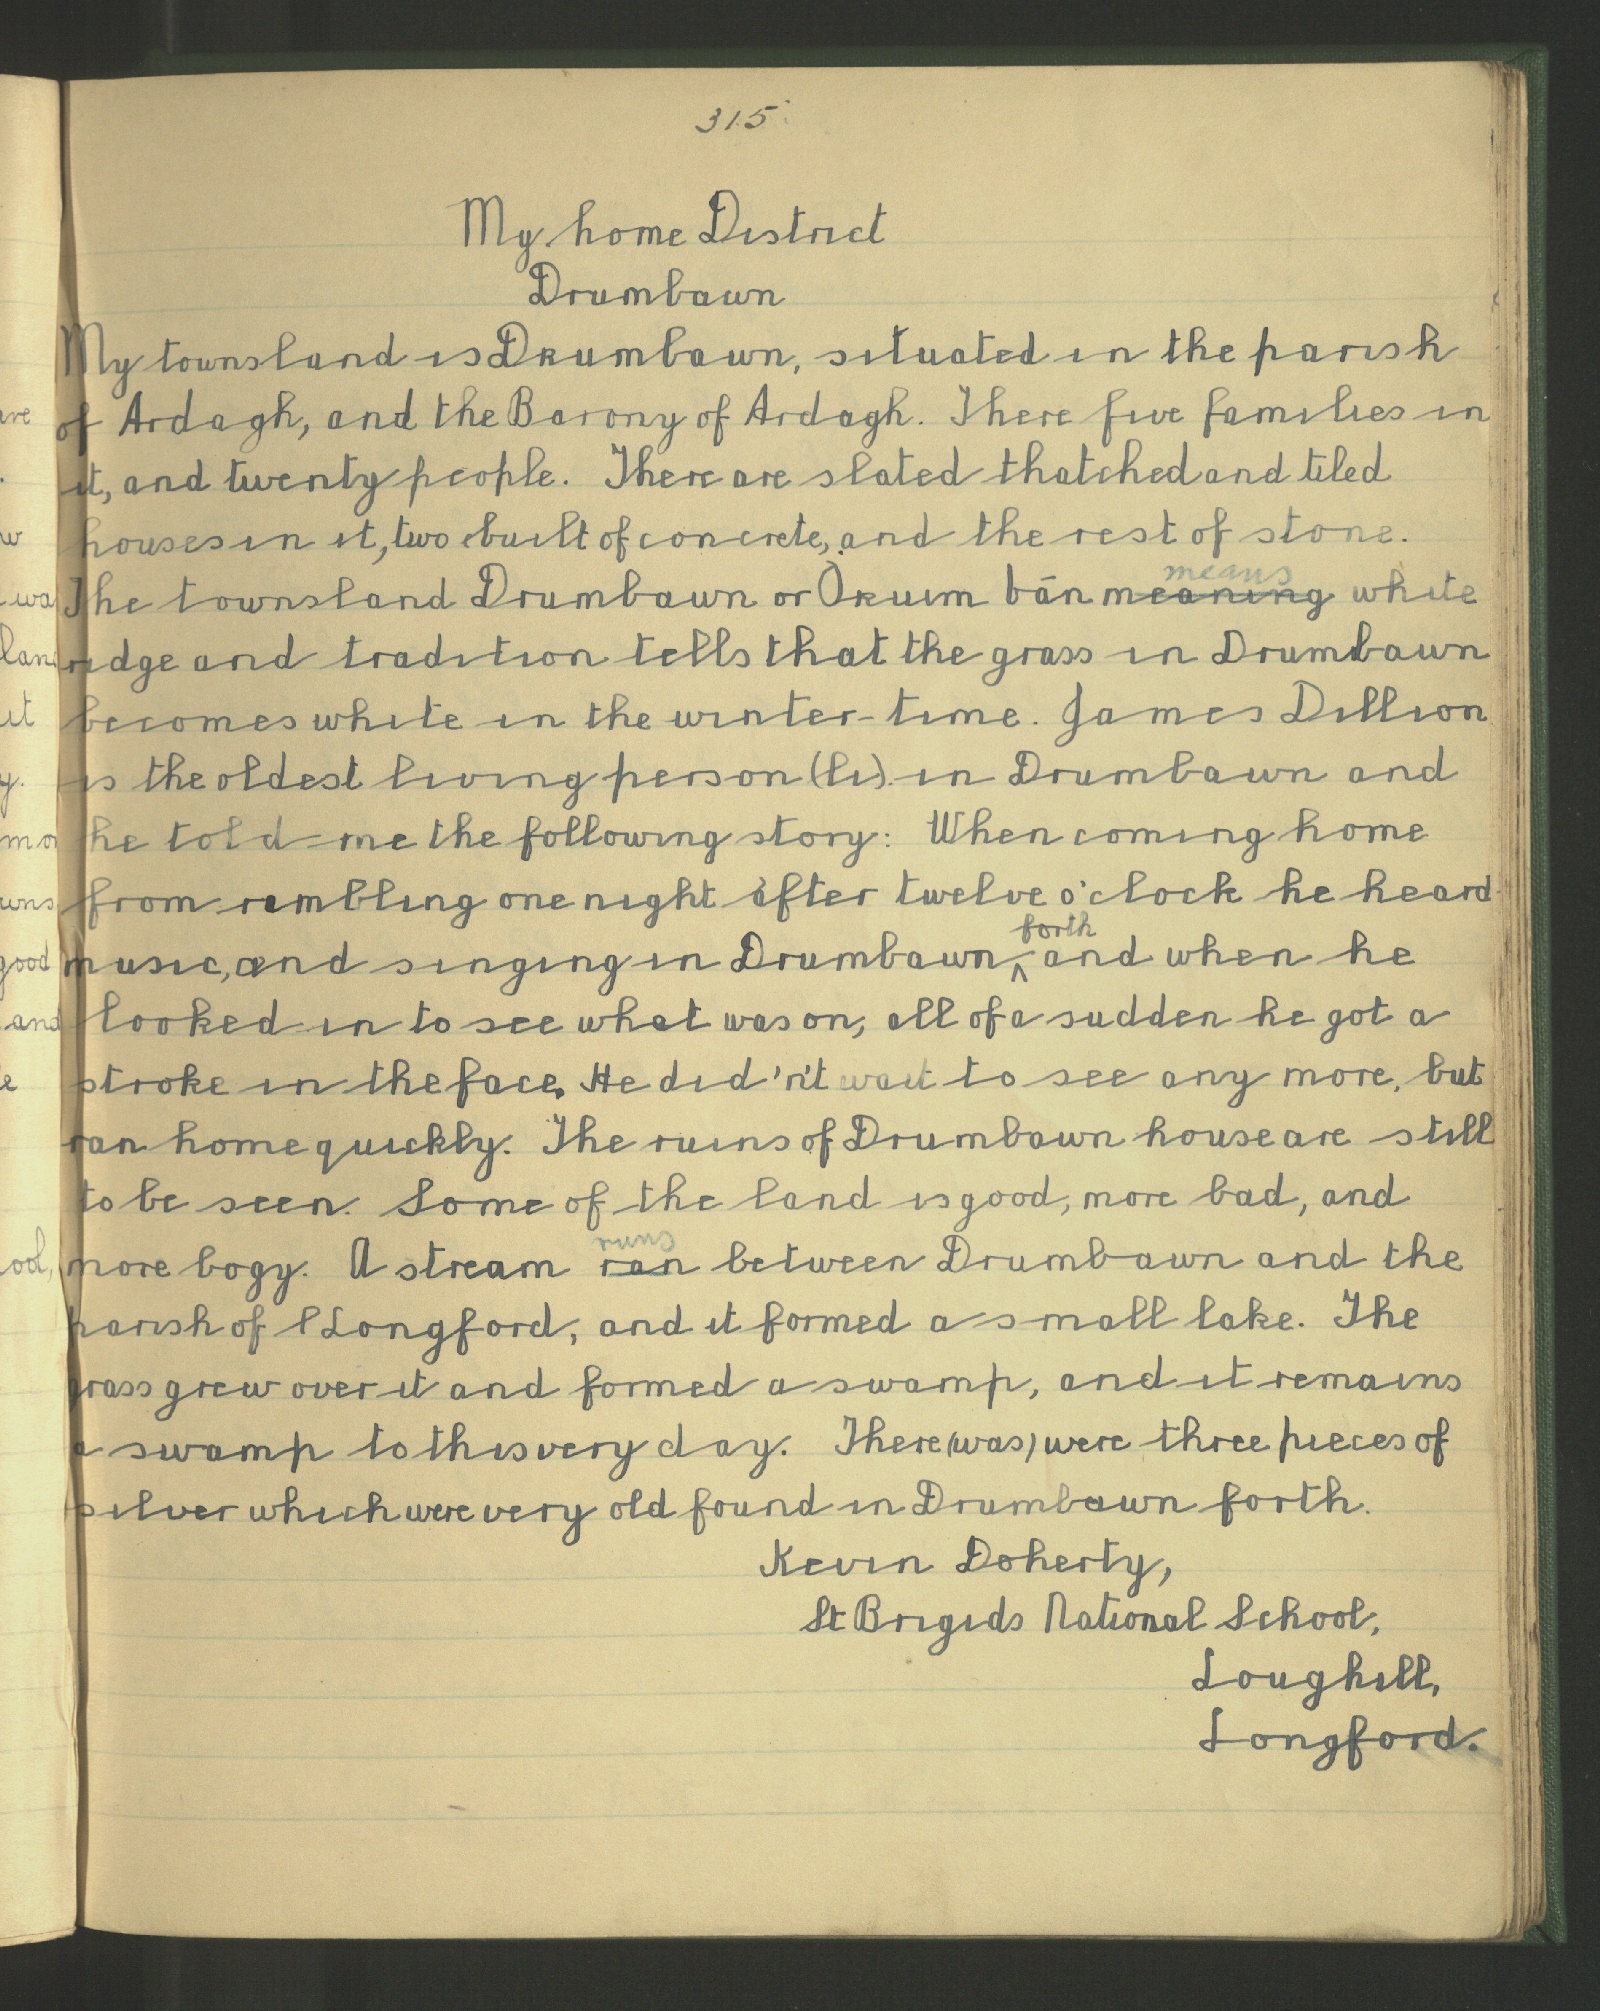 315
My home District
Drumbawn
My townsland is Drumbawn, situated in the parish
of Ardagh, and the Barony of Ardagh. There five families in
it, and twenty people. There are slated thatched and tiled
houses in it, two built of concrete, and the rest of stone.
The townsland Drumbawn or Druim bán meaning means white
ridge and tradition tells that the grass in Drumbawn
becomes white in the winter-time. James Dillion
is the oldest living person (li) in Drumbawn and
he told me the following story: When coming home
from rambling one night after twelve o'clock he heard
music, and singing in Drumbawn, forth and when he
looked in to see what was on, all of a sudden he got a
stroke in the face. He did'n't wait to see any more, but
ran home quickly. The ruins of Drumbawn house are still
to be seen. Some of the land is good, more bad, and
more bogy. A stream ran runs between Drumbawn and the
parish of l Longford, and it formed a small lake. The
grass grew over it and formed a swamp, and it remains
a swamp to this very day. There (was) were three pieces of
silver which were very old found in Drumbawn forth.
Kevin Doherty,
St Brigids National School,
Loughill,
Longford.